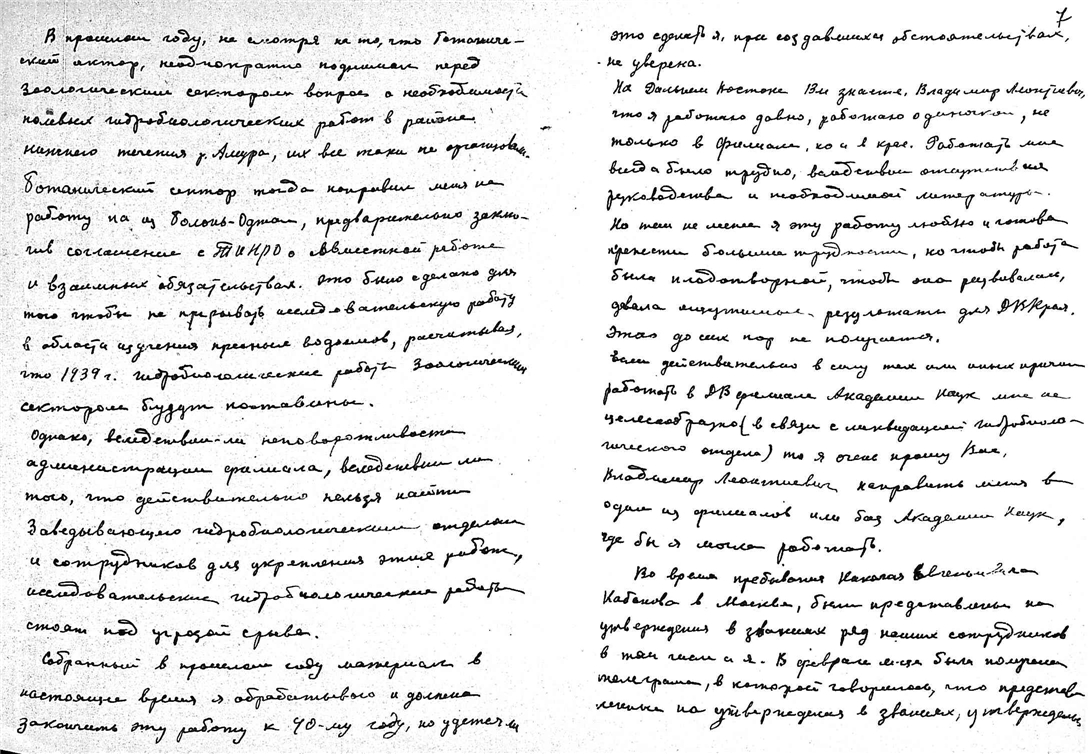 В прошлом году, не смотря на то, что Ботаниче-
ский сектор, неоднократно поднимал перед
Зоологическим сектором вопрос о необходимости
полевых гидробиологических работ в районе
нижнего течения р. Амура, их все таки не организовали.
Ботанический сектор тогда направил меня на
работу на оз Болонь-Оджал, предварительно заклю-
чив соглашение с ТИНРО о совместной работе
и взаимных обязательствах. Это было сделано для
того чтобы не прерывать исследовательскую работу
в области изучения пресных водоемов, расчитывая,
что 1939 г. гидробиологические работы Зоологическим
сектором будут поставлены.
Однако, вследствии-ли неповоротливости
администрации филиала, вследствии ли
того, что действительно нельзя найти
Заведывающего гидробиологическим отделом
и сотрудников для укрепления этих работ,
исследовательские гидробиологические работы
стоят под угрозой срыва.
Собранный в прошлом году материал в
настоящее время я обрабатываю и должна
закончить эту работу к 40-му году, но удастся ли
7
это сделать я, при создавшихся обстоятельствах,
не уверена.
На Дальнем Востоке Вы знаете, Владимир Леонтьевич,
что я работаю давно, работаю одиночкой, не
только в Филиале, но и в крае. Работать мне
всегда было трудно, вследствии отсутствия
руководства и необходимой литературы.
Но тем не менее я эту работу люблю и готова
принести большие трудности, но чтобы работа
была плодотворной, чтобы она развивалась,
давала ощутимые результаты для ДВКрая.
Этого до сих пор не получается.
Если действительно в силу тех или иных причин
работать в ДВ филиале Академии Наук мне не
целесообразно (в связи с ликвидацией гидробиоло-
гического отдела) то я очень прошу Вас,
Владимир Леонтиевич направить меня в
один из филиалов или баз Академии Наук,
где бы я могла работать.
Во время пребывания Николая Евгеньевича
Кабанова в Москве, были представлены на
утверждения в званиях ряд наших сотрудников
в том числе и я. В феврале м-це была получена
телеграма, в которой говорилось, что представ
ленные на утверждения в званиях, утверждены